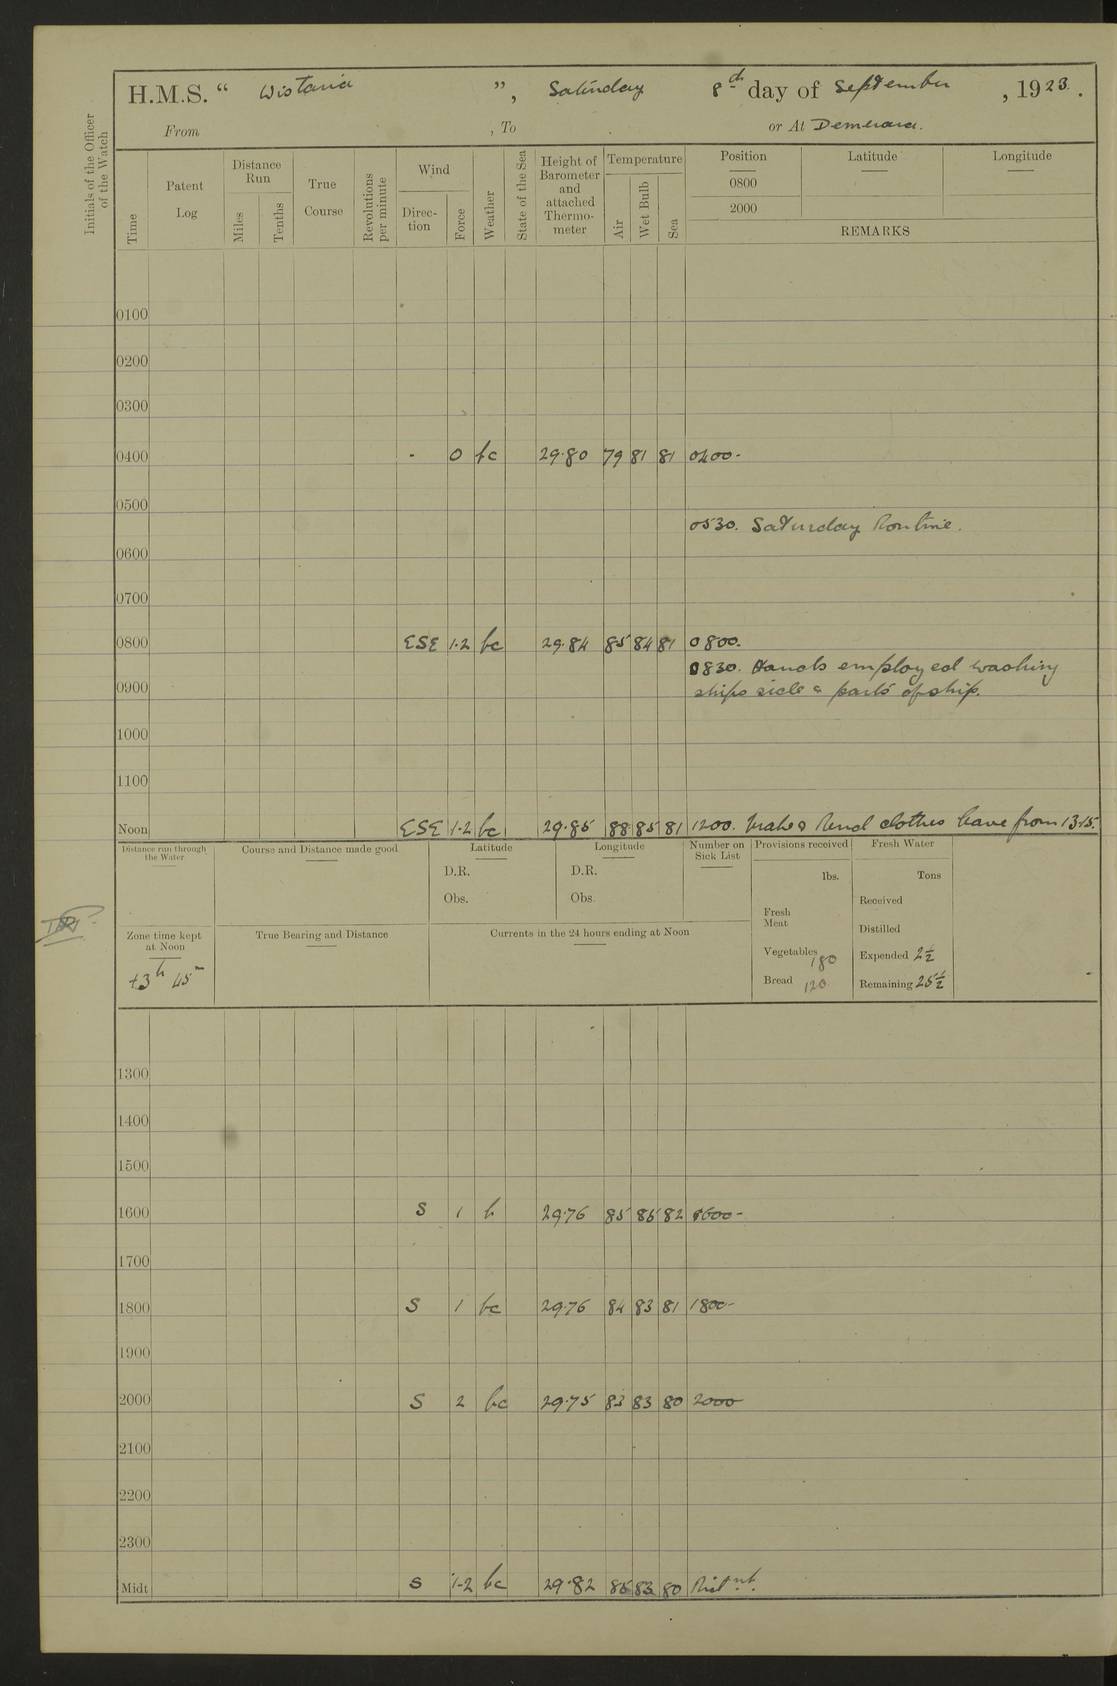 H.M.S. " Wistaria ", Saturday 8th day of September, 1923.
From , To or At Demerara.
Initials of the Officer of the Watch
Time
Patent Log
Distance Run
Miles
Tenths
True Course
Revolutions per minute
Wind
Direction
Force
Weather
State of the Sea
Height of Barometer and attached Thermometer
Temperature
Air
Wet Bulb
Sea
Position Latitude Longitude
0800
2000
REMARKS
0100
0200
0300
0400 - 0 bc 29.80 79 81 81 0400-
0500
0530. Saturday Routine.
0600
0700
0800 ESE 1.2 bc 29.84 85 84 81 0800.
0830. Hands employed washing
0900 ships side & parts of ship.
1000
1100
Noon ESE 1.2 bc 29.85 88 85 81 1200. Make & Mend clothes leave from 1315.
Distance run through the Water
Course and Distance made good
Latitude
D.R.
Obs.
Longitude
D.R.
Obs.
Number on Sick List
Provisions received
lbs.
Fresh Meat
Vegetables 180
Bread 120
Fresh Water
Tons
Received
Distilled
Expended 2½
Remaining 25½
Zone time kept at Noon
+3h 45m
True Bearing and Distance
Currents in the 24 hours ending at Noon
1300
1400
1500
1600 S 1 b 29.76 85 85 82 1600-
1700
1800 S 1 bc 29.76 84 83 81 1800-
1900
2000 S 2 bc 29.75 83 83 80 2000
2100
2200
2300
Midt S 1-2 bc 29.82 85 83 80 Midnt.